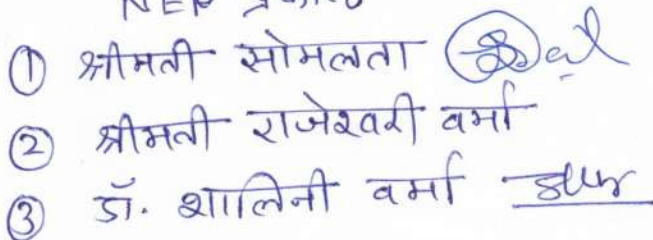 NEP
① श्रीमती सोमलता
② श्रीमती राजेश्वरी वर्मा
③ डॉ. शालिनी वर्मा